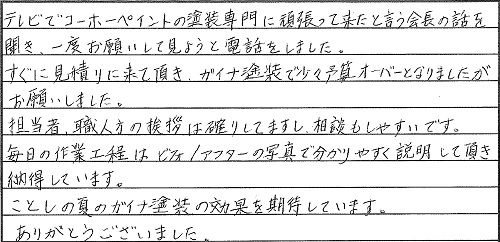 テレビでコーホーペイントの塗装専門に頑張って来たと言う会長の話を
聞き、一度お願いして見ようと電話をしました。
すぐに見積りに来て頂き、ガイナ塗装で少々予算オーバーとなりましたが
お願いしました。
担当者、職人方の挨拶は確りしてますし、相談もしやすいです。
毎日の作業工程はビフォー/アフターの写真で分かりやすく説明して頂き
納得しています。
ことしの夏のガイナ塗装の効果を期待しています。
ありがとうございました。